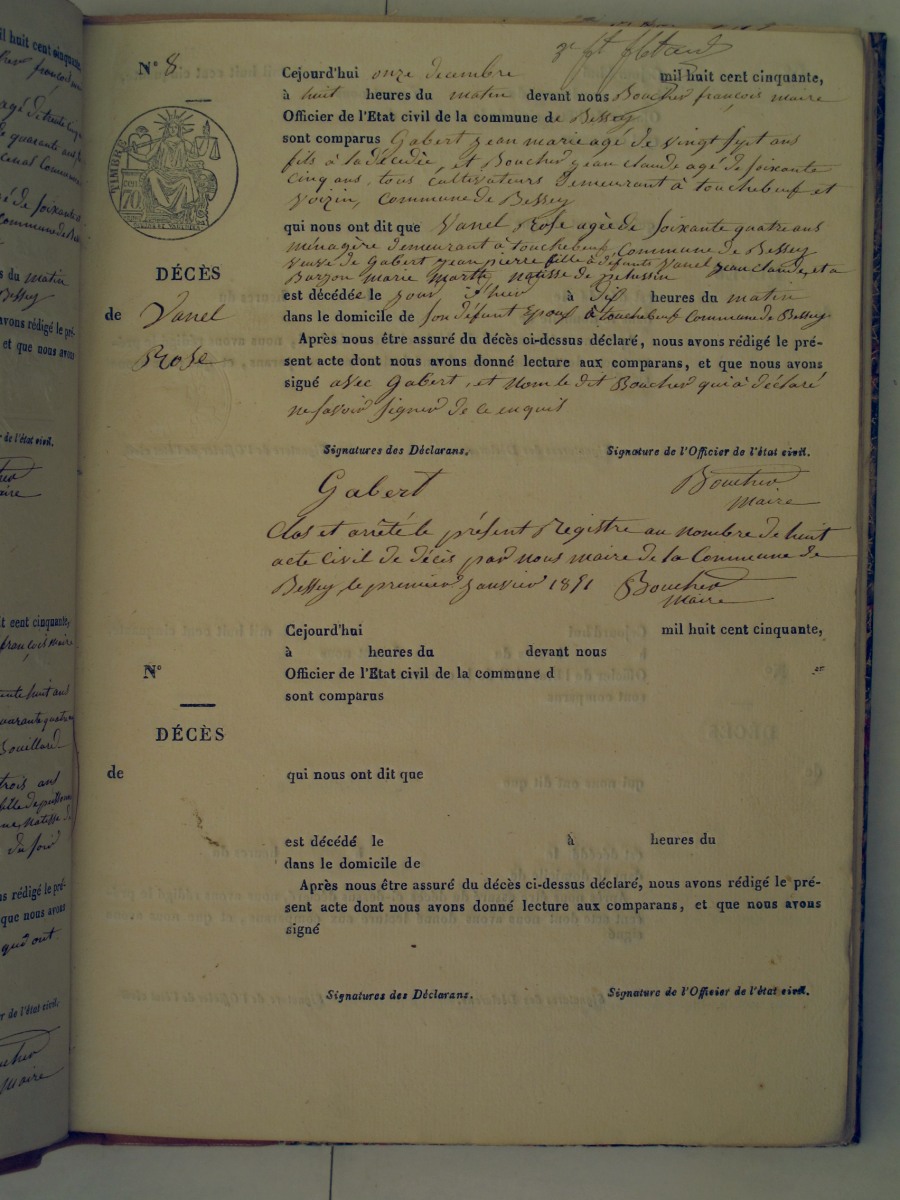 N° 8
Cejourd'hui onze decembre mil huit cent cinquante,
à huit heures du matin devant nous Boucher françois maire
Officier de l'Etat civil de la commune de Bessey
sont comparus Gabert jean marie agé de vingt sept ans
fils à la décédée, et Boucher jean claude agé de soixante
cinq ans, tous cultivateurs demeurant à touchebeuf et
voizin, Commune de Bessey
TIMBRE
70
qui nous ont dit que Vanel Rose agée de soixante quatre ans
ménagère demeurant à touchebeuf Commune de Bessey
veuve de Gabert jean pierre fille à défunts Vanel jean claude, et a
marie marthe natisse de pelussin
DÉCÈS
est décédée le jour d'hier à dix heures du matin
de Vanel
dans le domicile de son défunt Epoux à touchebeuf Commune de Bessey
Après nous être assuré du décès ci-dessus déclaré, nous avons rédigé le pré-
Rose
sent acte dont nous avons donné lecture aux comparans, et que nous avons
signé avec Gabert, et nom le dit Boucher qui à déclaré
ne savoir signer de ce enquit
Signatures des Déclarans. Signature de l'Officier de l'état civil.
Gabert Boucher
maire
Clos et arrêté le présent Registre au nombre de huit
acte civil de décès par nous maire de la Commune de
Bessey, le premier janvier 1851 Boucher
maire
Cejourd'hui mil huit cent cinquante,
à heures du devant nous
N° Officier de l'Etat civil de la commune d
sont comparus
DÉCÈS
de qui nous ont dit que
est décédé le à heures du
dans le domicile de
Après nous être assuré du décès ci-dessus déclaré, nous avons rédigé le pré-
sent acte dont nous avons donné lecture aux comparans, et que nous avons
signé
Signatures des Déclarans. Signature de l'Officier de l'état civil.